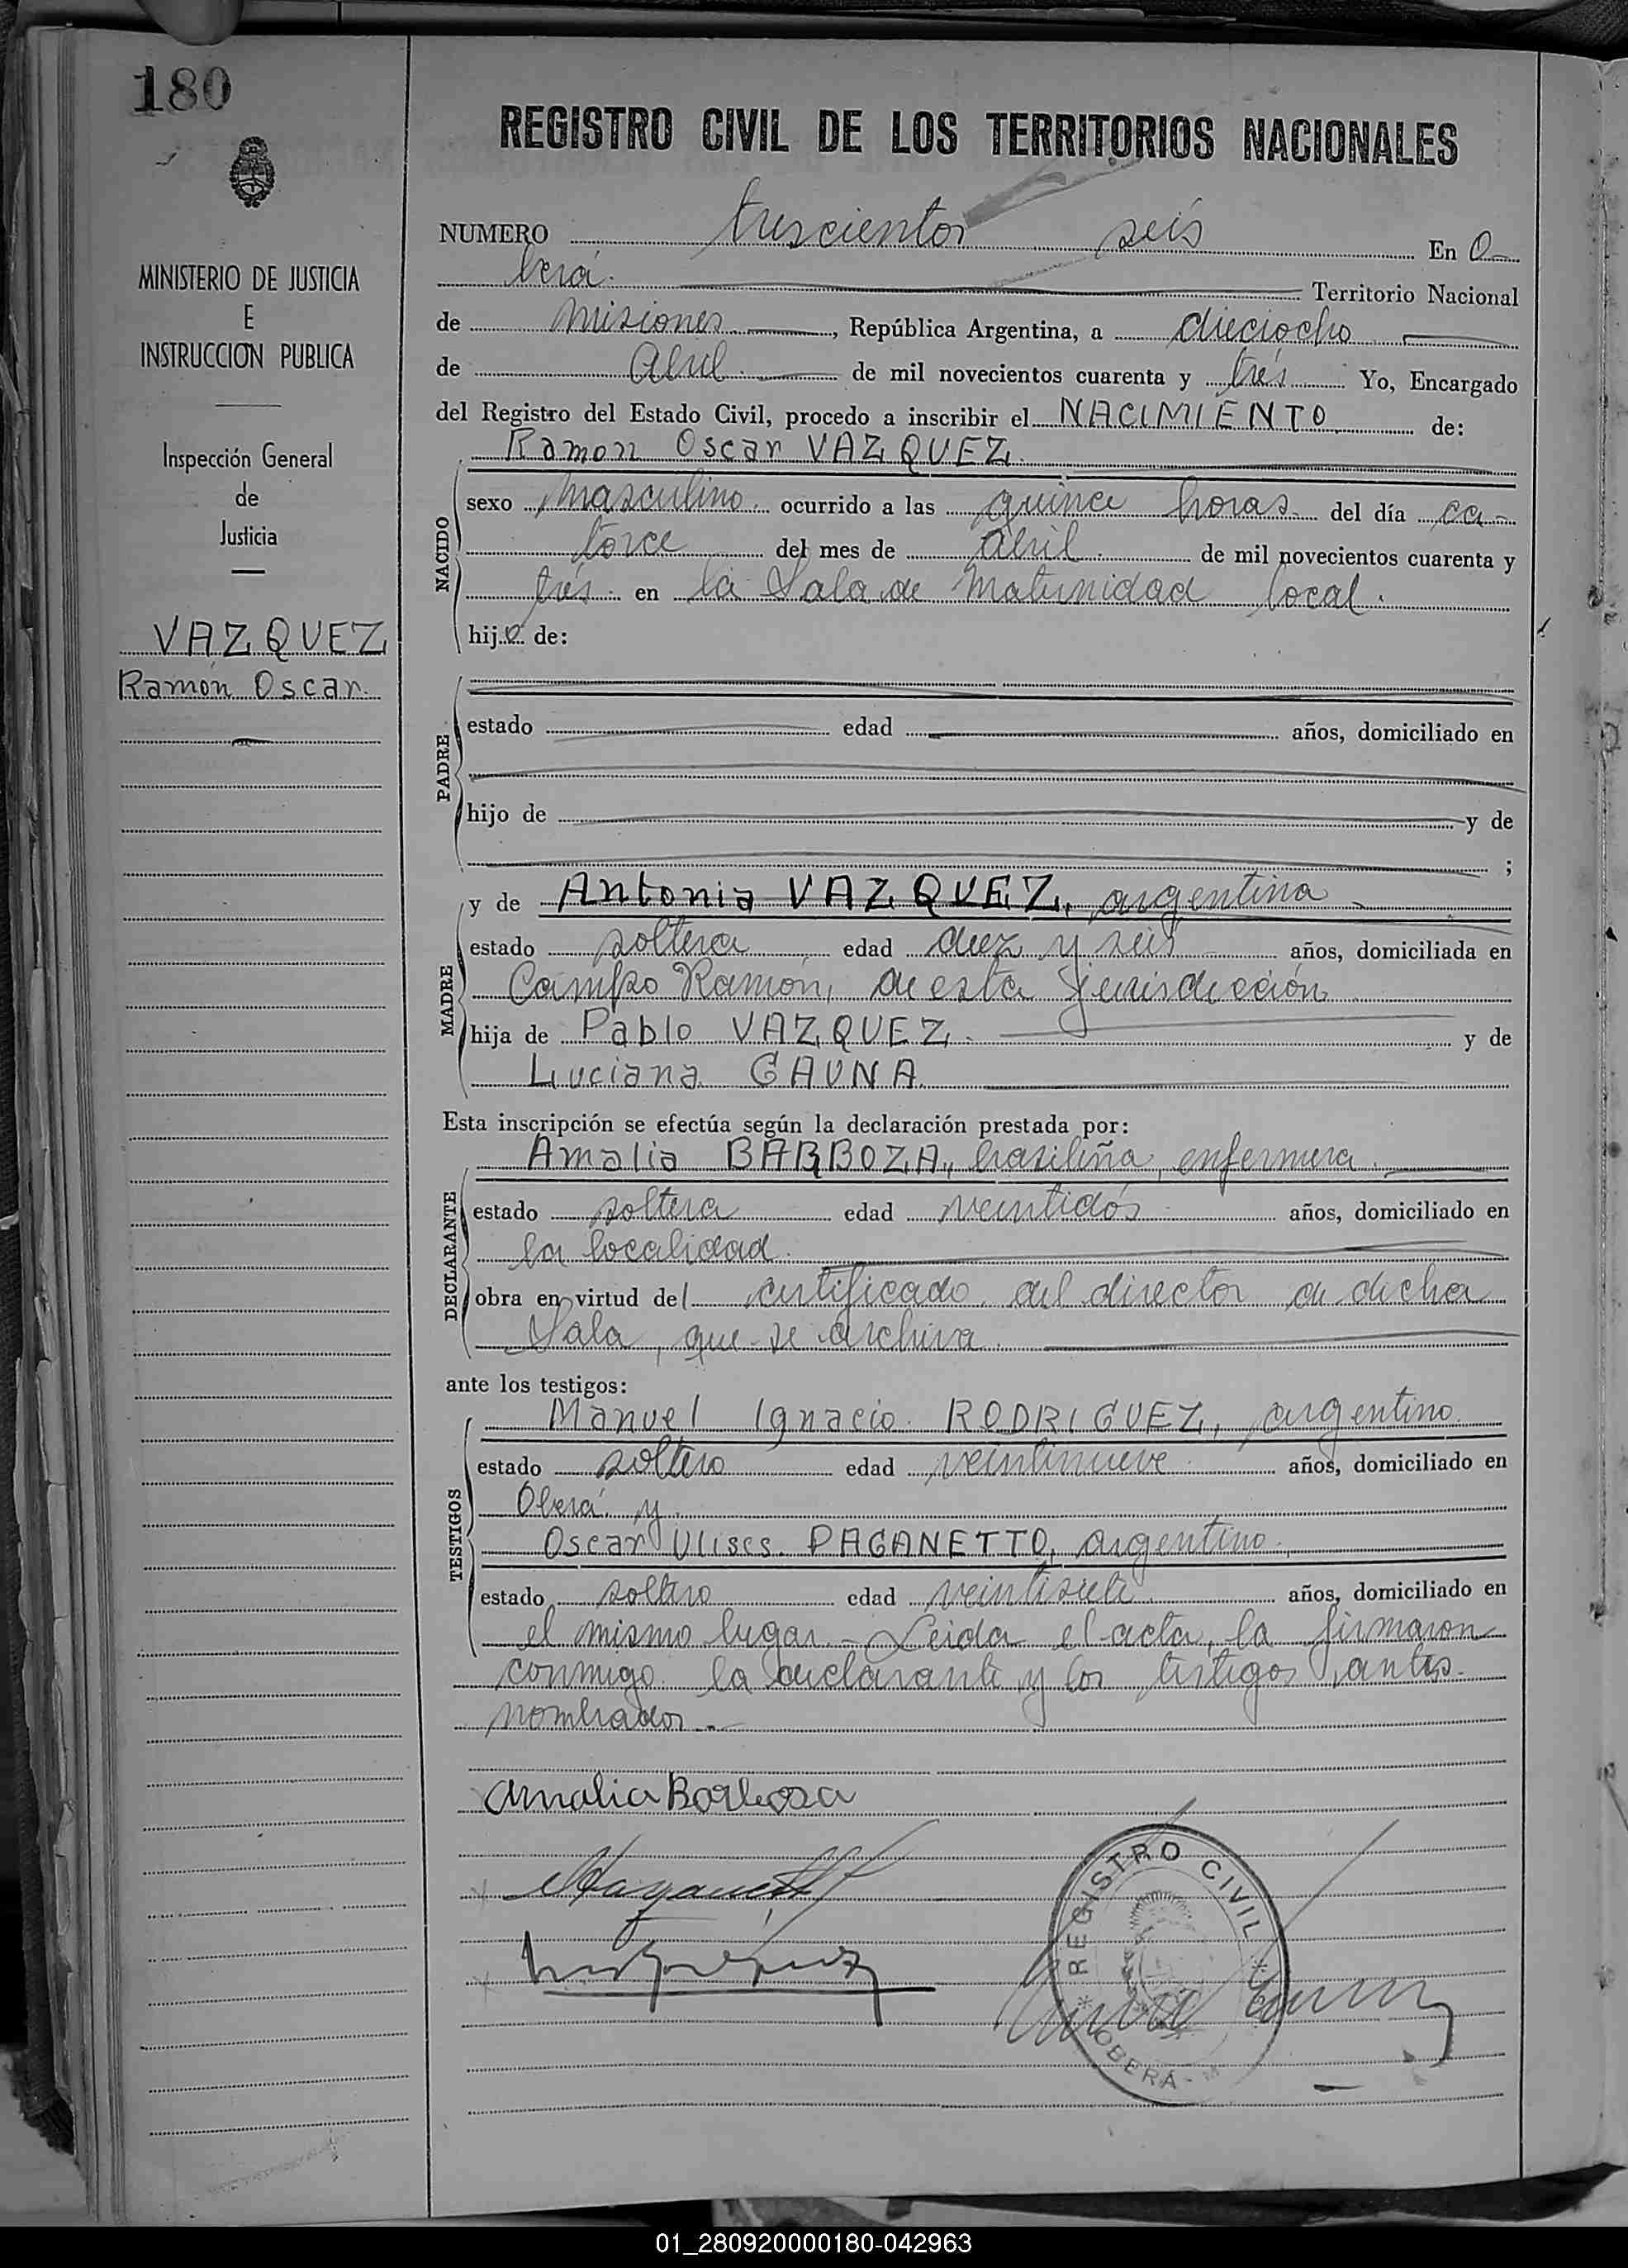 180
REGISTRO CIVIL DE LOS TERRITORIOS NACIONALES
MINISTERIO DE JUSTICIA
E
INSTRUCCION PUBLICA
Inspección General
de
Justicia
VAZQUEZ
Ramón Oscar.
NUMERO trescientos seis En O-
berá. Territorio Nacional
de Misiones, República Argentina, a dieciocho
de Abril. de mil novecientos cuarenta y trés Yo, Encargado
del Registro del Estado Civil, procedo a inscribir el NACIMIENTO de:
Ramon Oscar VAZQUEZ.
NACIDO
sexo masculino. ocurrido a las quince horas. del día ca-
torce del mes de abril. de mil novecientos cuarenta y
trés. en la Sala de Maternidad local.
hijo de:
PADRE
estado edad años, domiciliado en
hijo de y de
;
y de Antonia VAZQUEZ, argentina
MADRE
estado soltera edad diez y seis años, domiciliada en
Campo Ramón, de esta jurisdicción
hija de Pablo VAZQUEZ. y de
Luciana GAUNA.
Esta inscripción se efectúa según la declaración prestada por:
Amalia BARBOZA, brasileña, enfermera.
DECLARANTE
estado soltera edad veintidós años, domiciliado en
la localidad.
obra en virtud del certificado del director de dicha
Sala, que se archiva.
ante los testigos:
Manuel Ignacio RODRIGUEZ, argentino.
TESTIGOS
estado soltero edad veintinueve. años, domiciliado en
Oberá y
Oscar Ulises PAGANETTO, argentino.
estado soltero edad veintisiete. años, domiciliado en
el mismo lugar.- Leida el acta, la firmaron
conmigo la declarante y los testigos antes
nombrados.-
Amalia Barbosa
REGISTRO CIVIL
OBERÁ - M
01_280920000180-042963